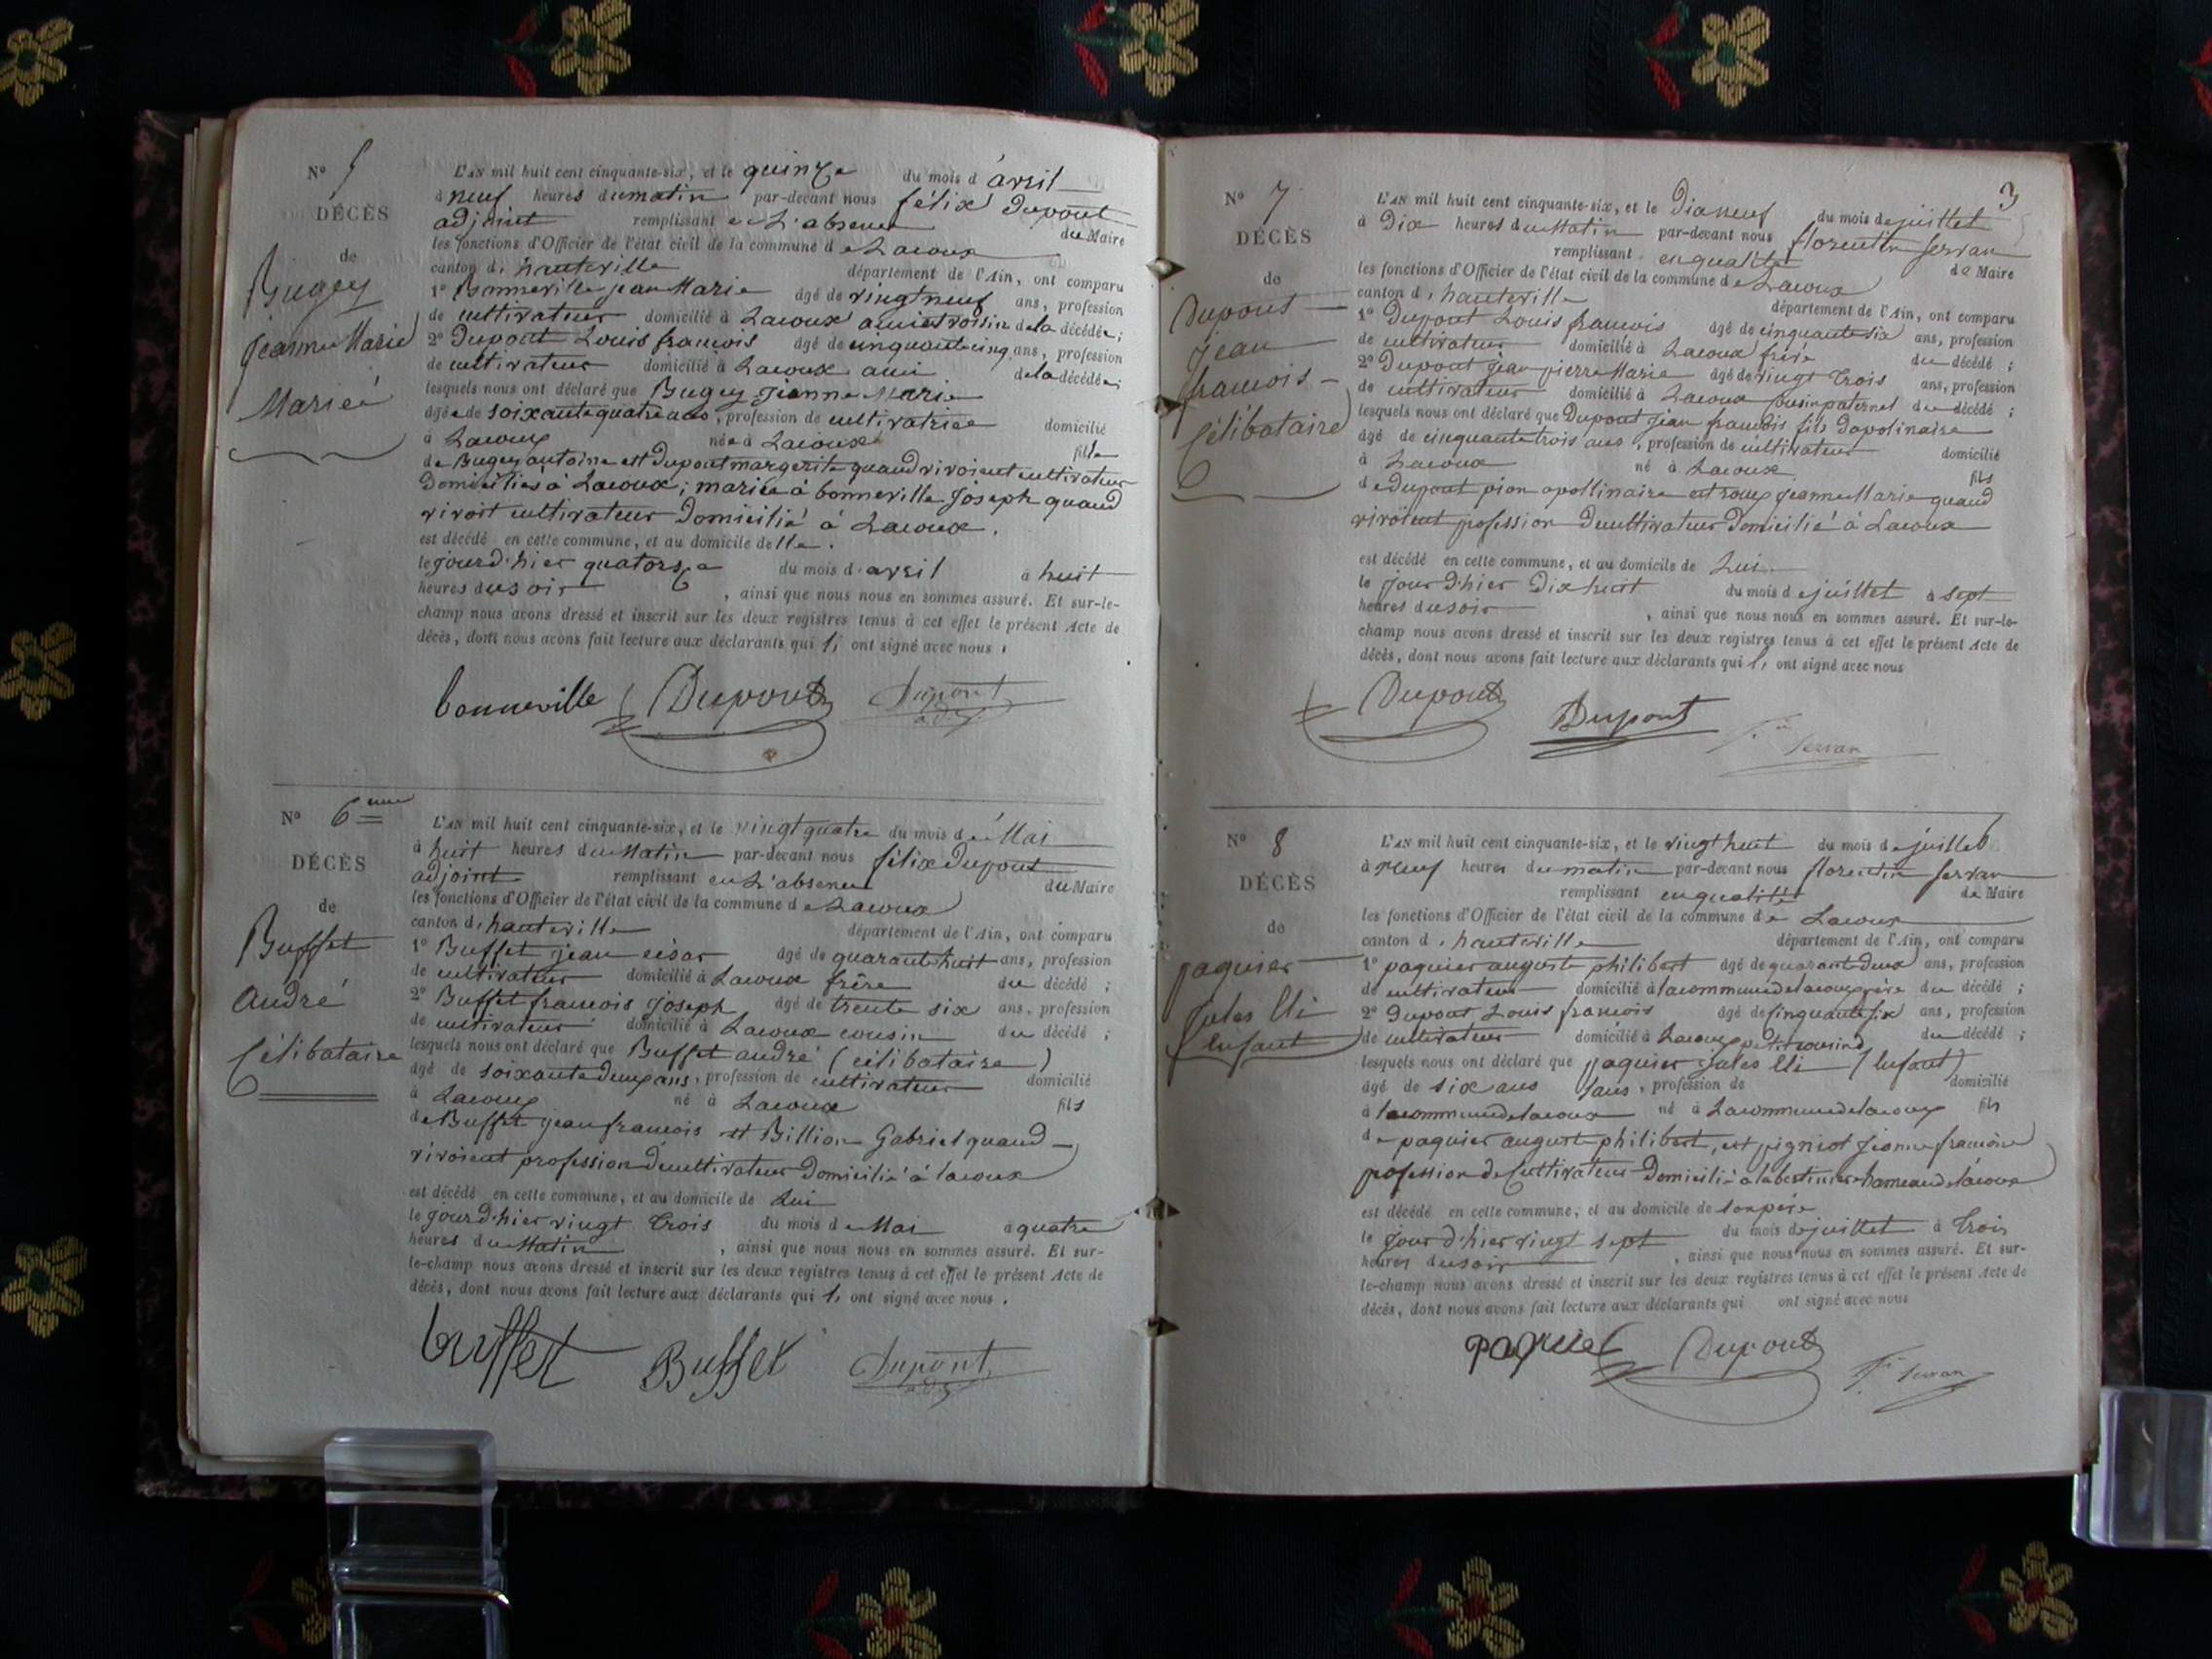 N° 5
DÉCÈS
de
Bugey
jeanne Marie
Mariée
L'AN mil huit cent cinquante-six, et le quinze du mois d'avril
à neuf heures du matin par-devant nous félix Dupont
adjoint remplissant en L'absence du Maire
les fonctions d'Officier de l'état civil de la commune de Lacoux
canton d'hauteville département de l'Ain, ont comparu
1° Bonneville jean Marie âgé de vingt neuf ans, profession
de cultivateur domicilié à Lacoux ami et voisin de la décédée;
2° Dupont Louis francois âgé de cinquante cinq ans, profession
de cultivateur domicilié à Lacoux ami de la décédée;
lesquels nous ont déclaré que Bugey Jeanne Marie
âgée de soixante quatre ans, profession de cultivatrice domicilié
à Lacoux née à Lacoux fille
de Bugey antoine est Dupont margerite quand vivoient cultivateur
Domiciliés à Lacoux; mariée à bonneville Joseph quand
vivoit cultivateur Domicilié à Lacoux.
est décédé en cette commune, et au domicile delle.
le jourd'hier quatorze du mois d'avril à huit
heures du soir, ainsi que nous nous en sommes assuré. Et sur-le-
champ nous avons dressé et inscrit sur les deux registres tenus à cet effet le présent Acte de
décès, dont nous avons fait lecture aux déclarants qui l, ont signé avec nous.
bonneville Dupont Dupont
adj.
N° 6eme
DÉCÈS
de
Buffet
André
Célibataire
L'AN mil huit cent cinquante-six, et le vingt quatre du mois de Mai
à huit heures du Matin par-devant nous félix Dupont
adjoint remplissant en L'absence du Maire
les fonctions d'Officier de l'état civil de la commune de Lacoux
canton d'hauteville département de l'Ain, ont comparu
1° Buffet jean césar âgé de quarante huit ans, profession
de cultivateur domicilié à Lacoux frère du décédé;
2° Buffet francois Joseph âgé de trente six ans, profession
de cultivateur domicilié à Lacoux cousin du décédé;
lesquels nous ont déclaré que Buffet andré (célibataire)
âgé de soixante deux ans, profession de cultivateur domicilié
à Lacoux né à Lacoux fils
de Buffet jean francois et Billion Gabriel quand
vivoient profession de cultivateur Domicilié à lacoux
est décédé en cette commune, et au domicile de Lui
le jourd'hier vingt trois du mois de Mai à quatre
heures du Matin, ainsi que nous nous en sommes assuré. Et sur-
le-champ nous avons dressé et inscrit sur les deux registres tenus à cet effet le présent Acte de
décès, dont nous avons fait lecture aux déclarants qui l, ont signé avec nous.
buffet Buffet Dupont
adj.
3
N° 7
DÉCÈS
de
Dupont
jean
francois
Célibataire
L'AN mil huit cent cinquante-six, et le Dixneuf du mois de juillet
à Dix heures du Matin par-devant nous florentin Servan
remplissant en qualité de Maire
les fonctions d'Officier de l'état civil de la commune de Lacoux
canton d'hauteville département de l'Ain, ont comparu
1° Dupont Louis francois âgé de cinquante six ans, profession
de cultivateur domicilié à Lacoux frère du décédé;
2° Dupont jean pierre Marie âgé de vingt trois ans, profession
de cultivateur domicilié à Lacoux cousin paternel du décédé;
lesquels nous ont déclaré que Dupont Jean francois fils Dapolinaire
âgé de cinquante trois ans, profession de cultivateur domicilié
à Lacoux né à Lacoux fils
de Dupont pion apollinaire et roux jeanne Marie quand
vivoient profession de cultivateur Domicilié à Lacoux
est décédé en cette commune, et au domicile de Lui
le jour D'hier Dix huit du mois de juillet à sept
heures du soir, ainsi que nous nous en sommes assuré. Et sur-le-
champ nous avons dressé et inscrit sur les deux registres tenus à cet effet le présent Acte de
décès, dont nous avons fait lecture aux déclarants qui l, ont signé avec nous
Dupont Dupont Servan
N° 8
DÉCÈS
de
paquier
Jules Eli
Enfant
L'AN mil huit cent cinquante-six, et le vingt huit du mois de juillet
à neuf heures du matin par-devant nous florentin Servan
remplissant en qualité de Maire
les fonctions d'Officier de l'état civil de la commune de Lacoux
canton d'hauteville département de l'Ain, ont comparu
1° paquier auguste philibert âgé de quarante deux ans, profession
de cultivateur domicilié à la commune de lacoux père du décédé;
2° Dupont Louis francois âgé de Cinquante Six ans, profession
de cultivateur domicilié à Lacoux petit cousin du décédé;
lesquels nous ont déclaré que paquier Jules Eli (Enfant)
âgé de six ans sans, profession de domicilié
à la commune de lacoux né à La commune de lacoux fils
de paquier auguste philibert, est pigniot Jeanne francoise
profession de Cultivateur Domicilié à hameau de lacoux
est décédé en cette commune, et au domicile de son père
le jour d'hier vingt sept du mois de juillet à trois
heures du soir, ainsi que nous nous en sommes assuré. Et sur-
le-champ nous avons dressé et inscrit sur les deux registres tenus à cet effet le présent Acte de
décès, dont nous avons fait lecture aux déclarants qui ont signé avec nous
paquier Dupont Servan